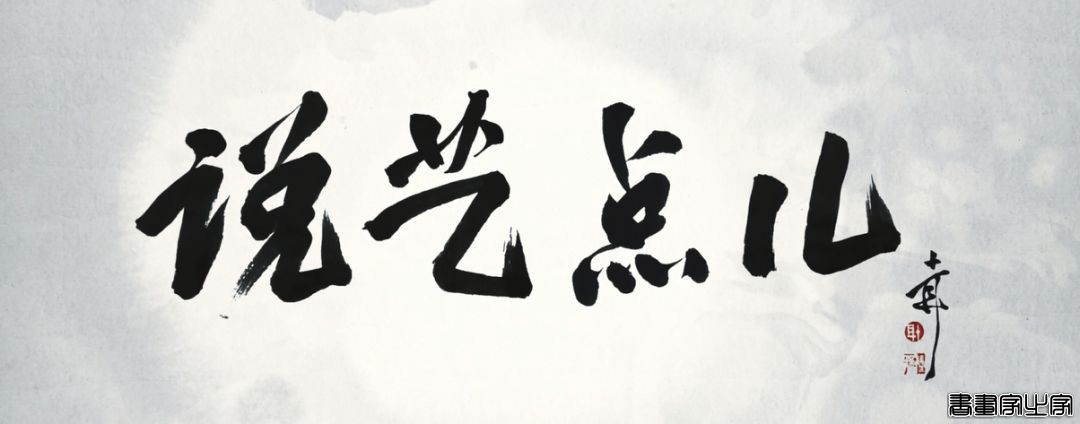 说艺点儿
書畫家之家